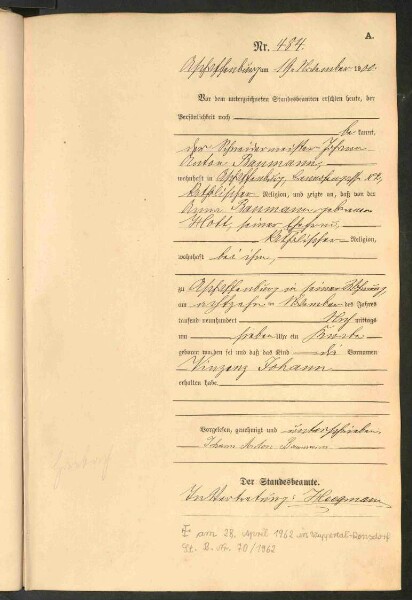 A.
Nr. 484.
Aschaffenburg am 19. November 1900.
Vor dem unterzeichneten Standesbeamten erschien heute, der
Persönlichkeit nach
be kannt,
der Schneidermeister Johann
Anton Baumann,
wohnhaft in Aschaffenburg,
katholischer Religion, und zeigte an, daß von der
Anna Baumann, geborenen
Hott, seiner Ehefrau,
katholischer Religion,
wohnhaft bei ihm,
zu Aschaffenburg in seiner Wohnung
am achtzehn November des Jahres
tausend neunhundert Nach mittags
um sieben Uhr ein Knabe
geboren worden sei und daß das Kind die Vornamen
Vinzenz Johann
erhalten habe
Vorgelesen, genehmigt und unterschrieben
Johann Anton Baumann
Der Standesbeamte.
In Vertretung:
am 28. April 1962 in Wuppertal-Ronsdorf
St. B. Nr. 70/1962